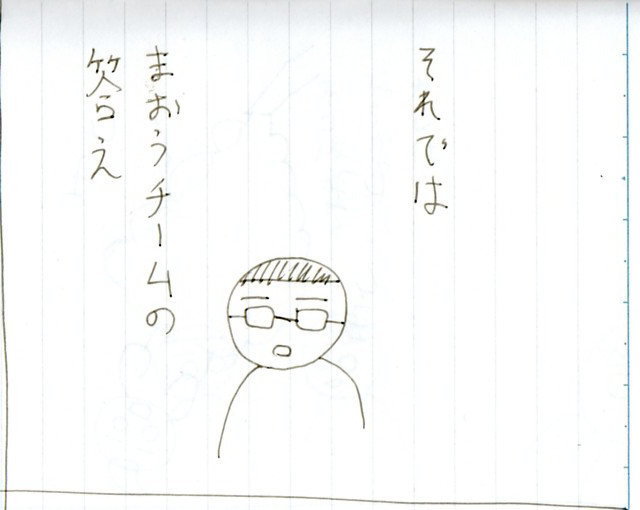 それでは
まおうチームの
答え